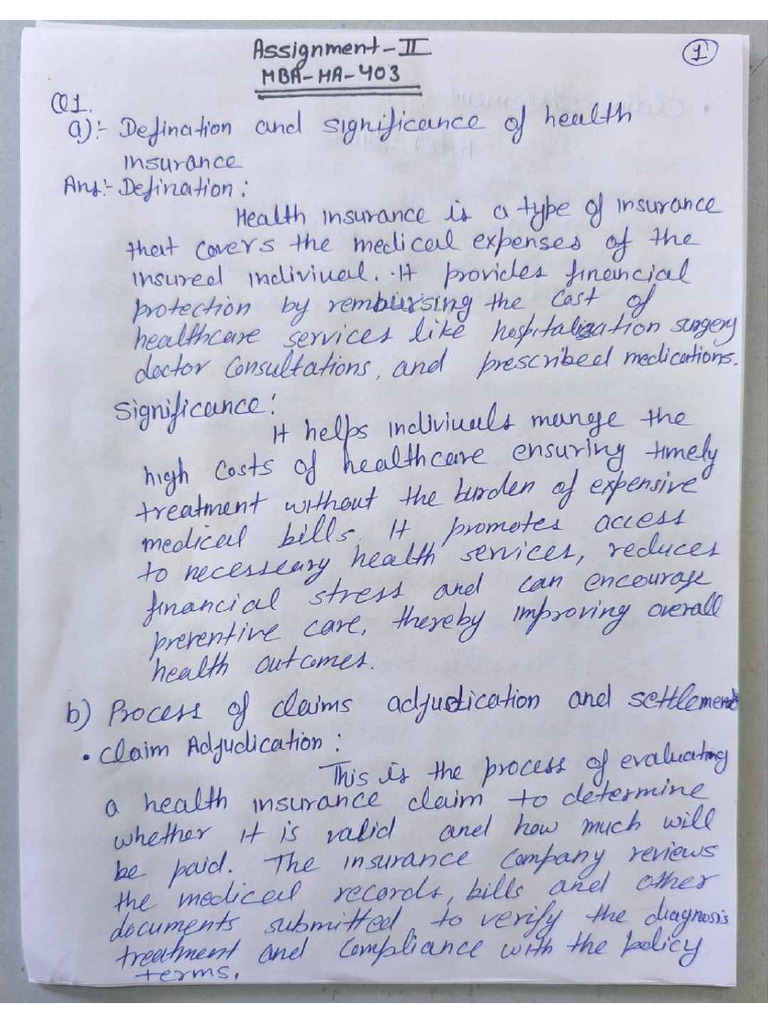 Assignment-II
1
MBA-HA-403
Q1.
a):- Defination and significance of health
insurance
Ans:- Defination:
Health insurance is a type of insurance
that covers the medical expenses of the
insured indiviual. It provides financial
protection by rembursing the cost of
healthcare services like hospitalization surgery
doctor consultations, and prescribed medications.
Significance:
It helps indiviuals mange the
high costs of healthcare ensuring timely
treatment without the burden of expensive
medical bills. It promotes access
to necesseary health services, reduces
financial stress and can encourage
preventive care, thereby improving overall
health outcomes.
b) Process of claims adjudication and settlement
• Claim Adjudication:
This is the process of evaluating
a health insurance claim to determine
whether it is valid and how much will
be paid. The insurance company reviews
the medical records, bills and other
documents submitted to verify the diagnosis
treatment and compliance with the policy
terms.